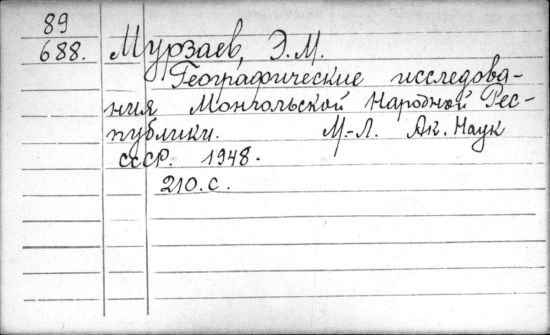 89
688. Мурзаев, Э.М.
Географические исследова-
ния Монгольской Народной Рес-
публики. М.-Л. Ак. Наук
СССР. 1948.
210.с.